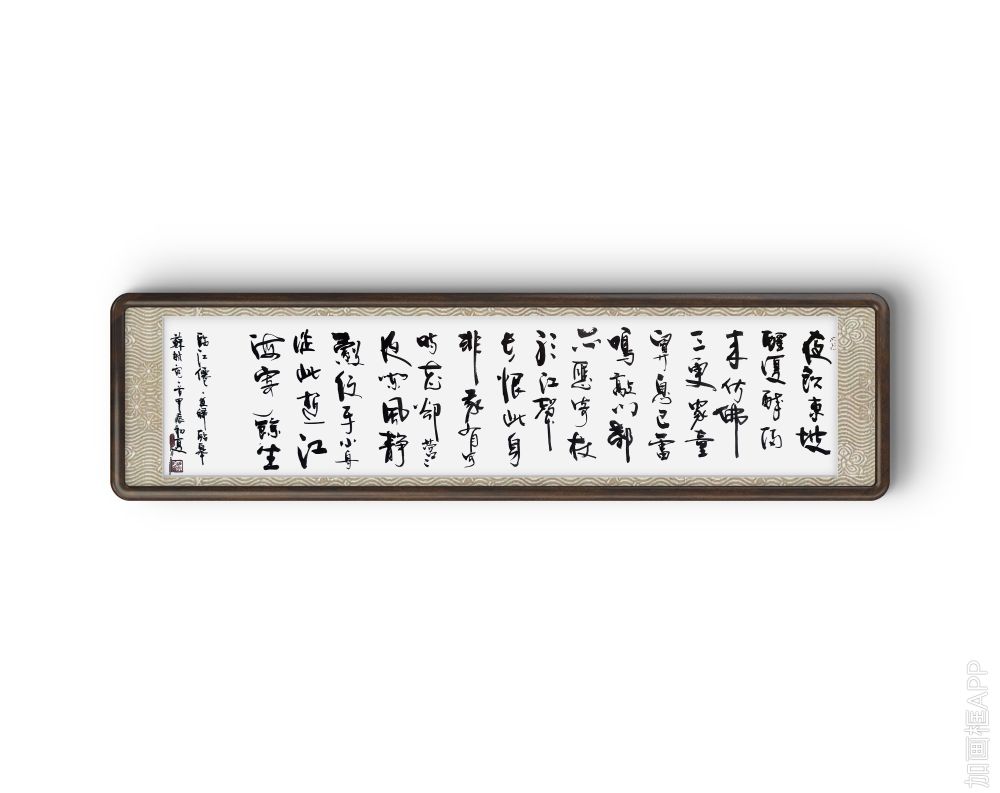 夜飲東坡
醒復醉歸
来仿佛
三更家童
鼻息已雷
鳴敲门都
不應倚杖
聽江聲
長恨此身
非我有何
時忘卻營〻
夜闌風静
縠紋平小舟
從此逝江
海寄餘生
臨江僊·夜歸臨皋
蘇軾詞 甲辰初夏
加画框APP